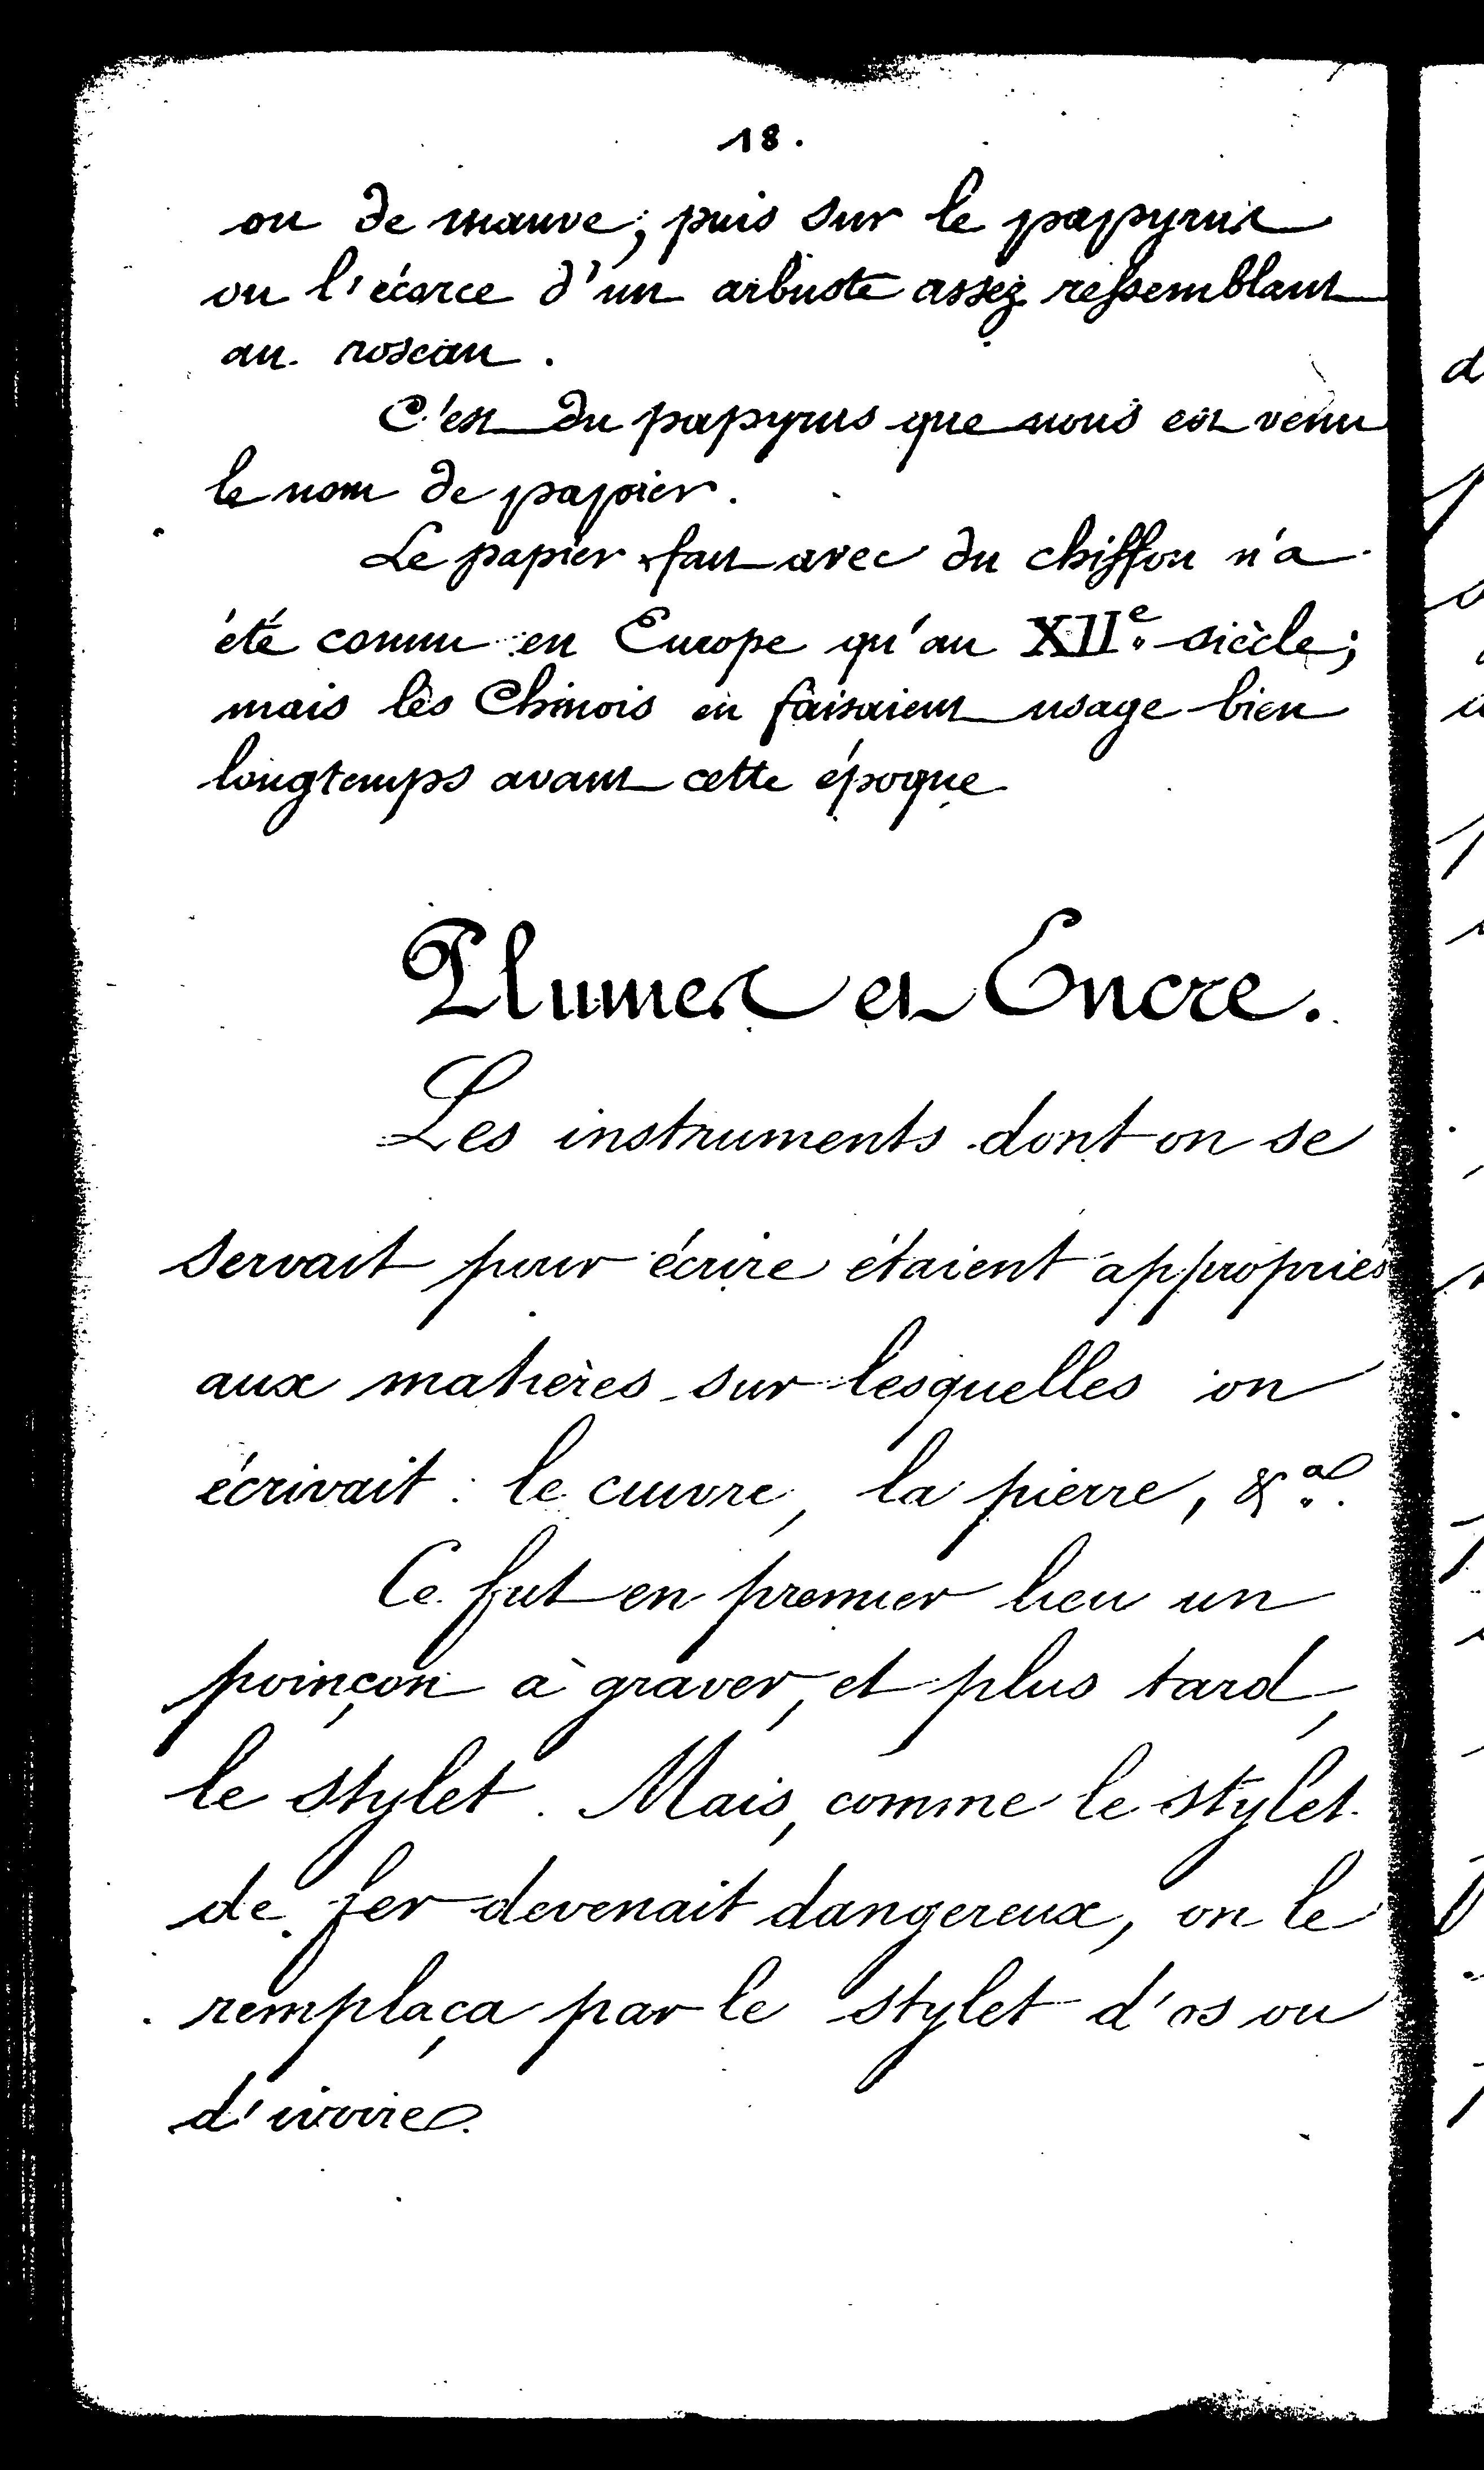 18.
ou de mauve; puis sur le papyrus
ou l'écorce d'un arbuste assez ressemblant
au roseau.
C'est du papyrus que nous est venu
le nom de papier.
Le papier fait avec du chiffon n'a
été connu en Europe qu'au XIIe siècle;
mais les Chinois en faisaient usage bien
longtemps avant cette époque
Plumes et Encre.
Les instruments dont on se
servait pour écrire étaient appropriés
aux matières sur lesquelles on
écrivait : le cuivre, la pierre, &a.
Ce fut en premier lieu un
poinçon à graver, et plus tard,
le stylet. Mais, comme le stylet
de fer devenait dangereux, on le
remplaça par le stylet d'os ou
d'ivoire.